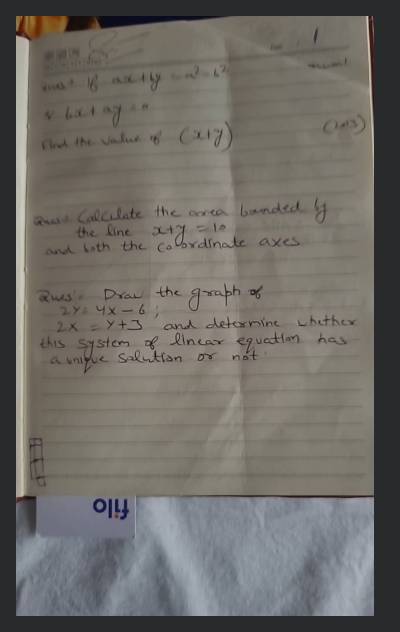 1
Ques: If ax + by = a² - b²
& bx + ay = 0
Find the value of (x+y)
Ques: Calculate the area bounded by
the line x+y = 10
and both the coordinate axes
Ques: Draw the graph of
2y = 4x - 6 ;
2x = y + 3 and determine whether
this system of linear equation has
a unique solution or not.
filo